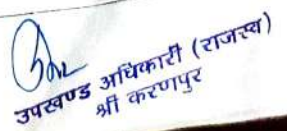 उपखण्ड अधिकारी (राजस्व)
श्री करणपुर